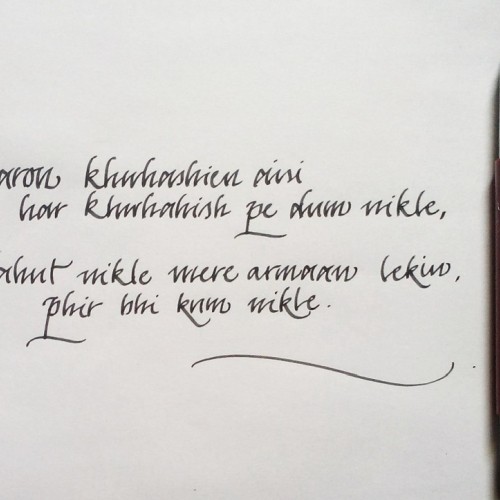 aron khwhashien aisi
har khwhahish pe dum nikle,
ahut nikle mere armaan lekin,
phir bhi kum nikle.